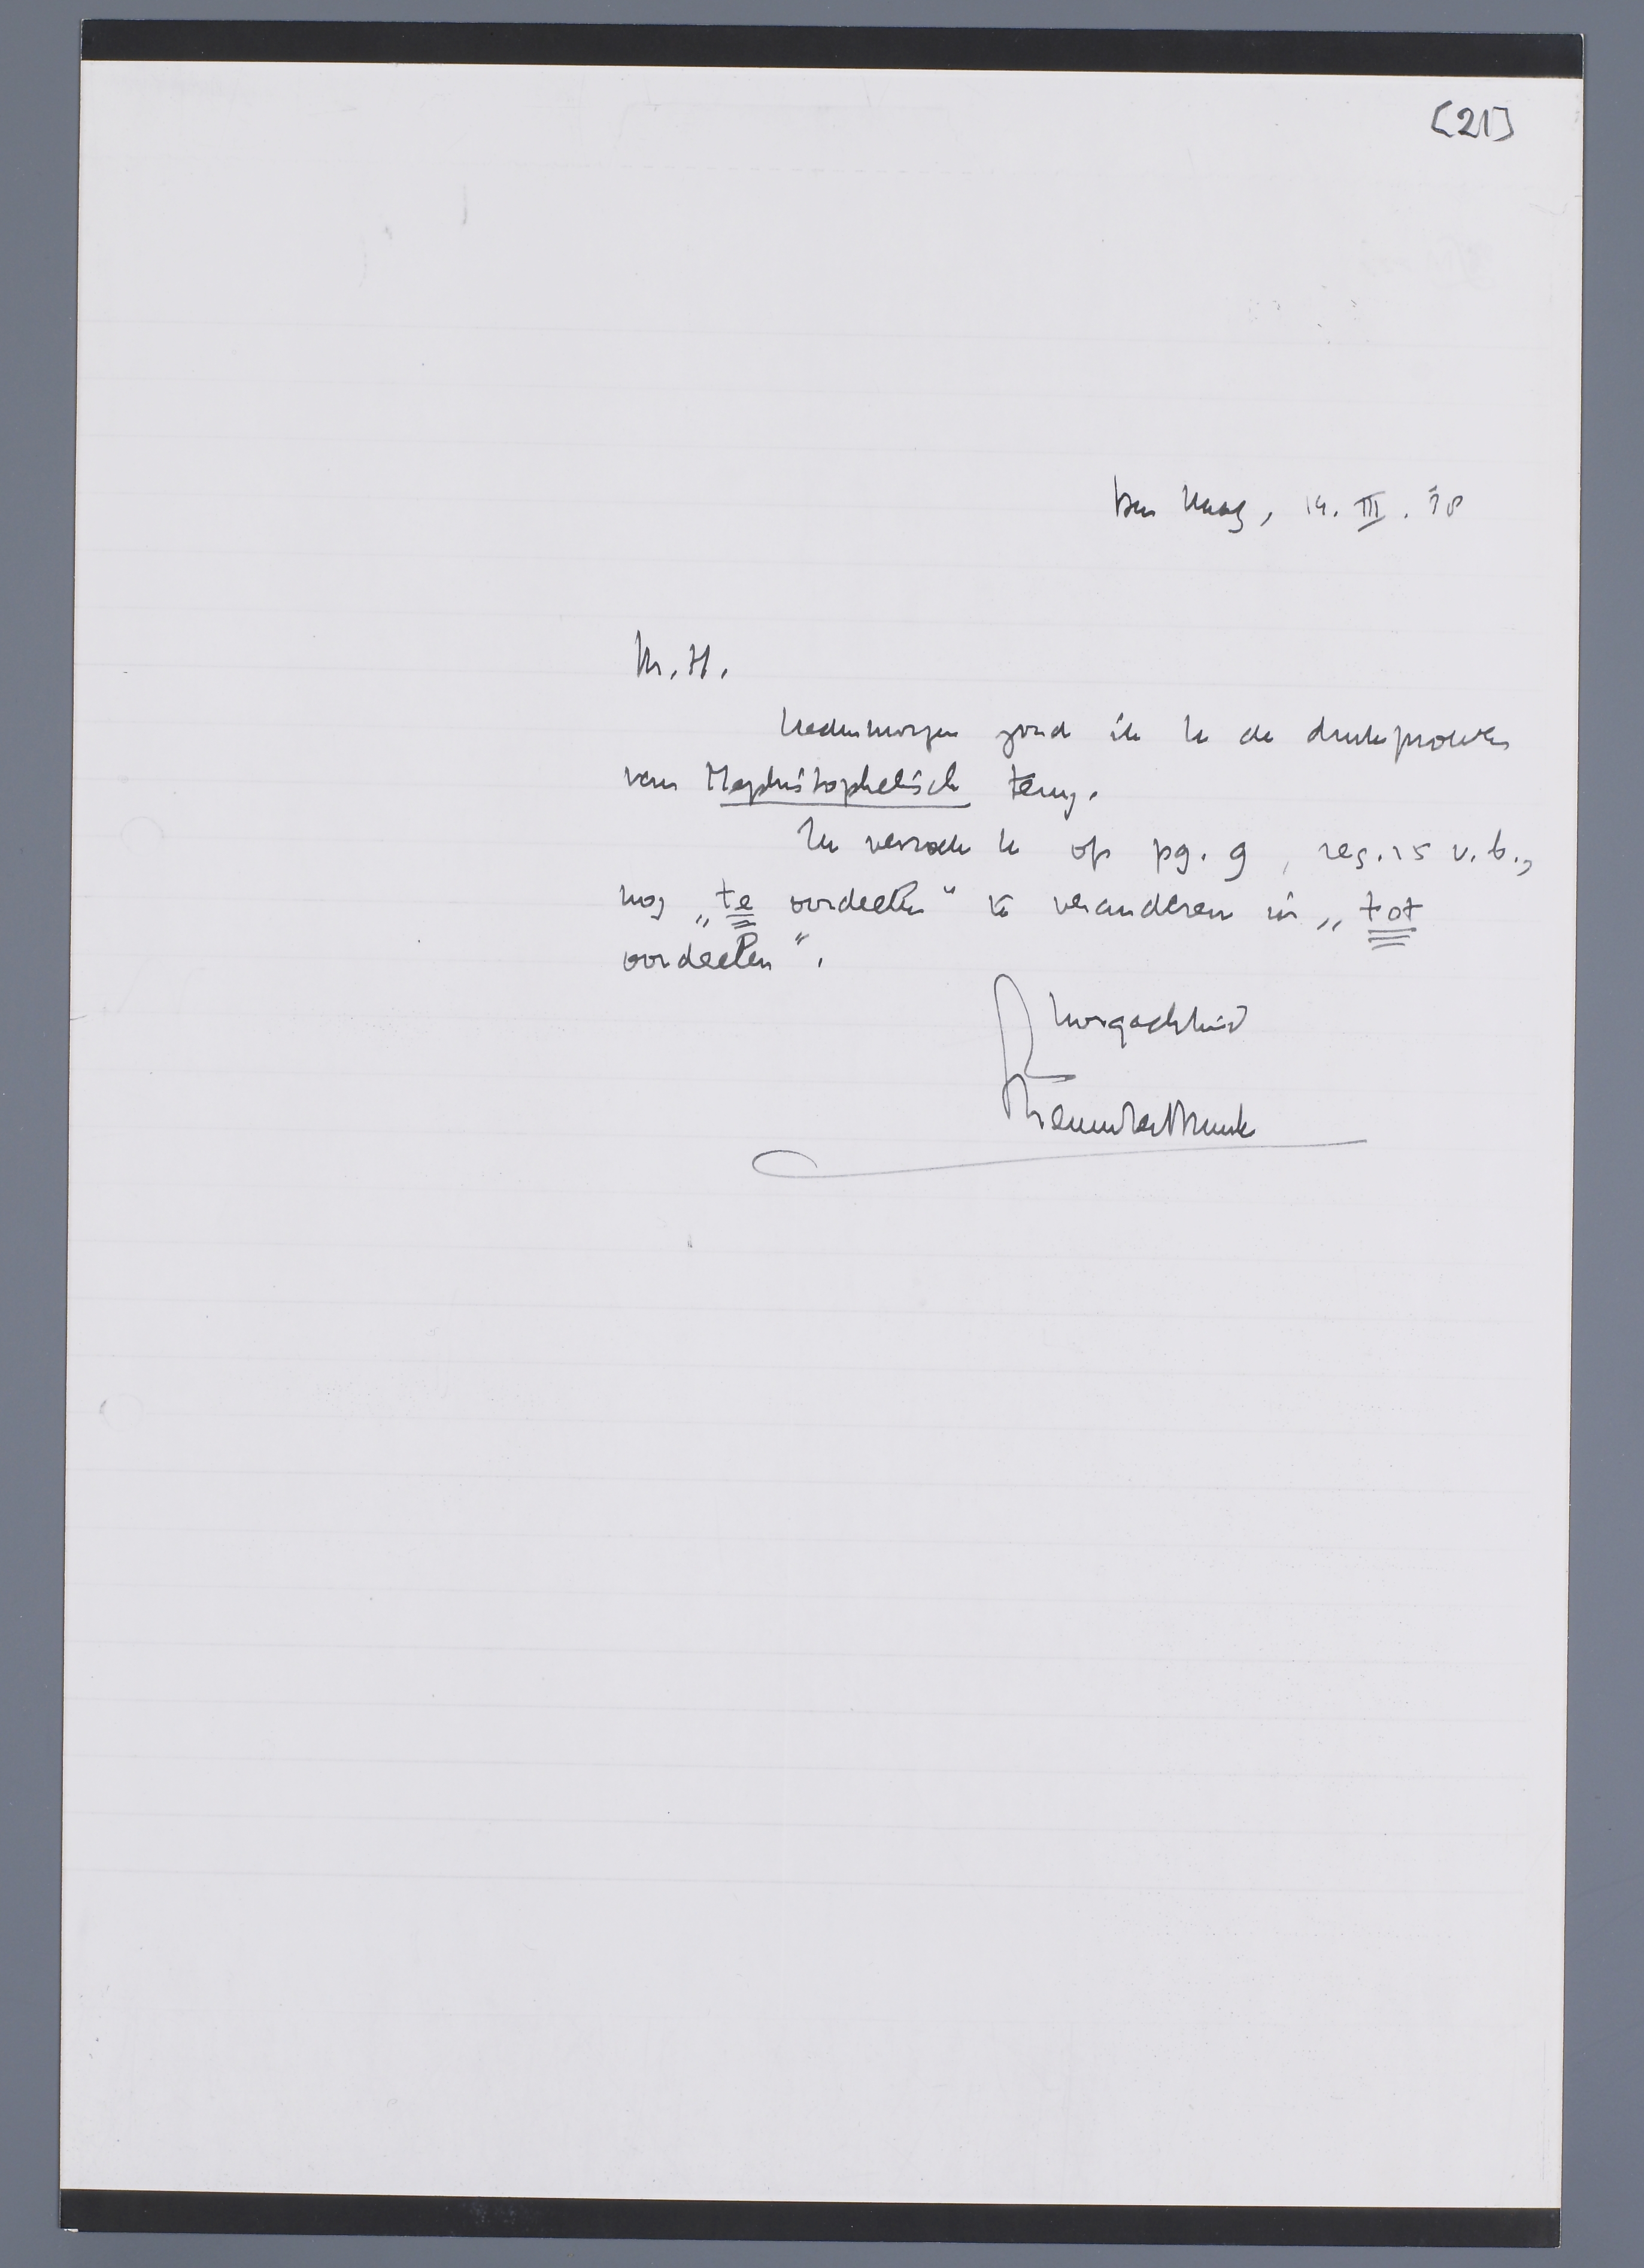 [21]
Den Haag, 14. III. 38
M. H.
Hedenmorgen zond ik U de drukproeven
van Mephistophelisch terug.
Ik verzoek U op pg. 9, reg. 15 v. b.,
nog „te oordeelen" te veranderen in „tot
oordeelen".
Hoogachtend